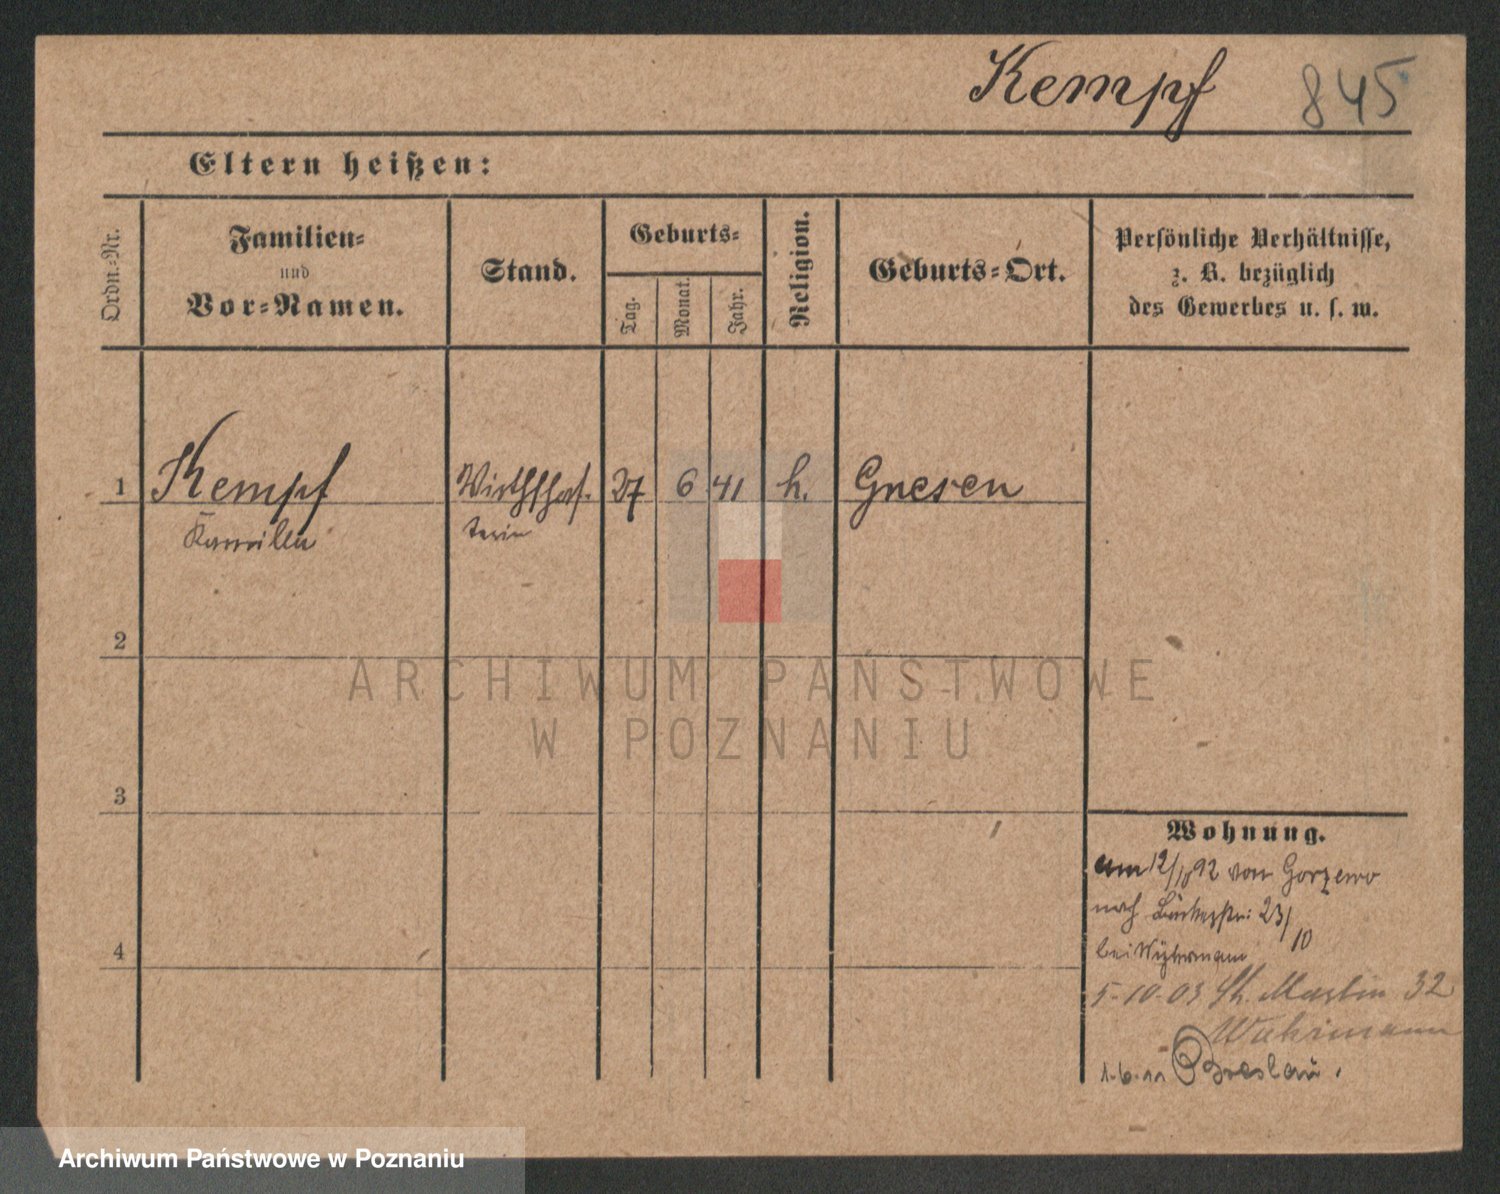 Kempf 845
Eltern heißen:
Ordn.-Nr.
Familien-
und
Vor-Namen.
Stand.
Geburts-
Tag.
Monat.
Jahr.
Religion.
Geburts-Ort.
Persönliche Verhältnisse,
z. B. bezüglich
des Gewerbes u. s. w.
1 Kempf Wirthschaf- 27 6 41 k. Gnesen
Kamilla terin
2
ARCHIWUM PAŃSTWOWE
W POZNANIU
3
Wohnung.
am 12/10 92 von Gorzewo
nach Bäckerstr. 23/
10
bei
4
5-10-03 St. Martin 32
Wuhrmann
1-6-11 Breslau.
Archiwum Państwowe w Poznaniu